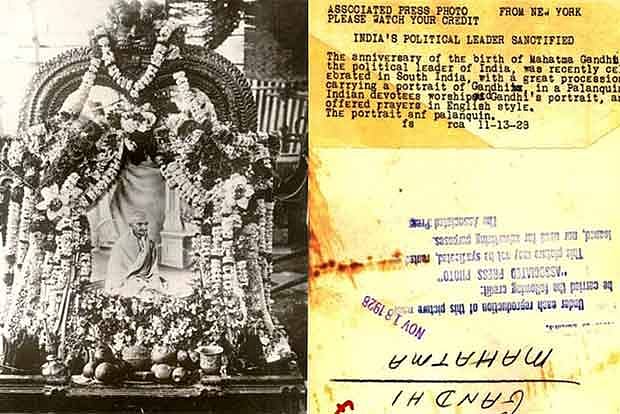 ASSOCIATED PRESS PHOTO FROM NEW YORK
PLEASE WATCH YOUR CREDIT
INDIA'S POLITICAL LEADER SANCTIFIED
The anniversary of the birth of Mahatma Gandhi
the political leader of India, was recently cel
ebrated in South India, with a great procession
carrying a portrait of Gandhi, in a Palanquin
Indian devotees worshiped Gandhi's portrait, an
offered prayers in English style.
The portrait anf palanquin.
fs rca 11-13-28
GANDHI
MAHATMA
NOV 13 1928
Under each reproduction of this picture
be carried the following credit:
"ASSOCIATED PRESS PHOTO"
This picture may not be syndicated, rent
loaned, nor used for advertising purposes.
The Associated Press